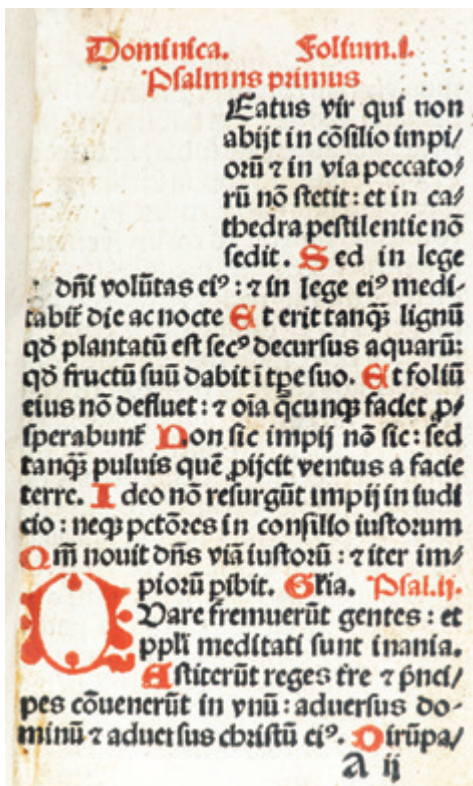 Dominica. Folium.i.
Psalmus primus
Eatus vir qui non
abijt in cõsilio impi/
orũ ⁊ in via peccato/
rũ nõ stetit: et in ca/
thedra pestilentie nõ
sedit. Sed in lege
dñi volũtas eiꝰ: ⁊ in lege eiꝰ medi-
tabiť die ac nocte Et erit tanqȝ̃ lignũ
qđ plantatũ est secꝰ decursus aquarũ:
qđ fructũ suũ dabit ĩ tꝑe suo. Et foliũ
eius nõ defluet: ⁊ oĩa q̃cunqȝ faciet ꝓ/
sperabunť Non sic impij nõ sic: sed
tanqȝ̃ puluis quẽ ꝓijcit ventus a facie
terre. Ideo nõ resurgũt impij in iudi
cio: neqȝ pctõres in consilio iustorum
Qm̃ nouit dñs viã iustorũ: ⁊ iter im/
piorũ ꝑibit. Gľia. Psal.ij.
QUare fremuerũt gentes: et
ppľi meditati sunt inania.
Astiterũt reges tr̃e ⁊ pñci/
pes cõuenerũt in vnũ: aduersus do-
minũ ⁊ aduersus christũ eiꝰ. Dirũpa/
A ij